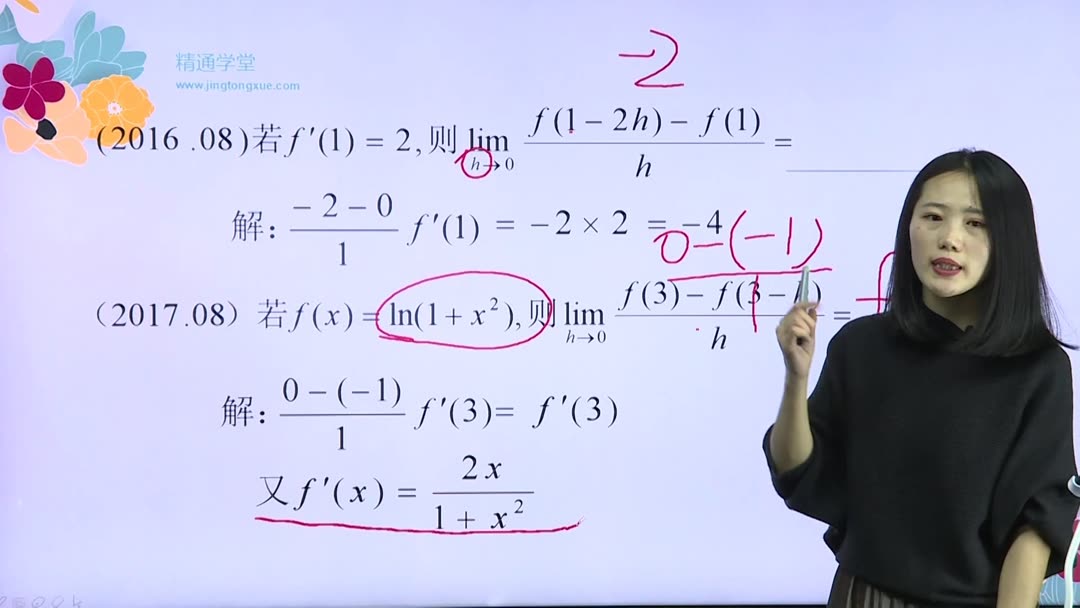 -2
精通学堂
www.jingtongxue.com
(2016.08)若f′(1) = 2,则 lim h→0 f(1−2h)−f(1) / h =
解: −2−0 / 1 f′(1) = −2×2 = −4
0−(−1)
(2017.08) 若f(x) = ln(1+x²),则 lim h→0 f(3)−f(3−h) / h = f
解: 0−(−1) / 1 f′(3) = f′(3)
又f′(x) = 2x / 1+x²